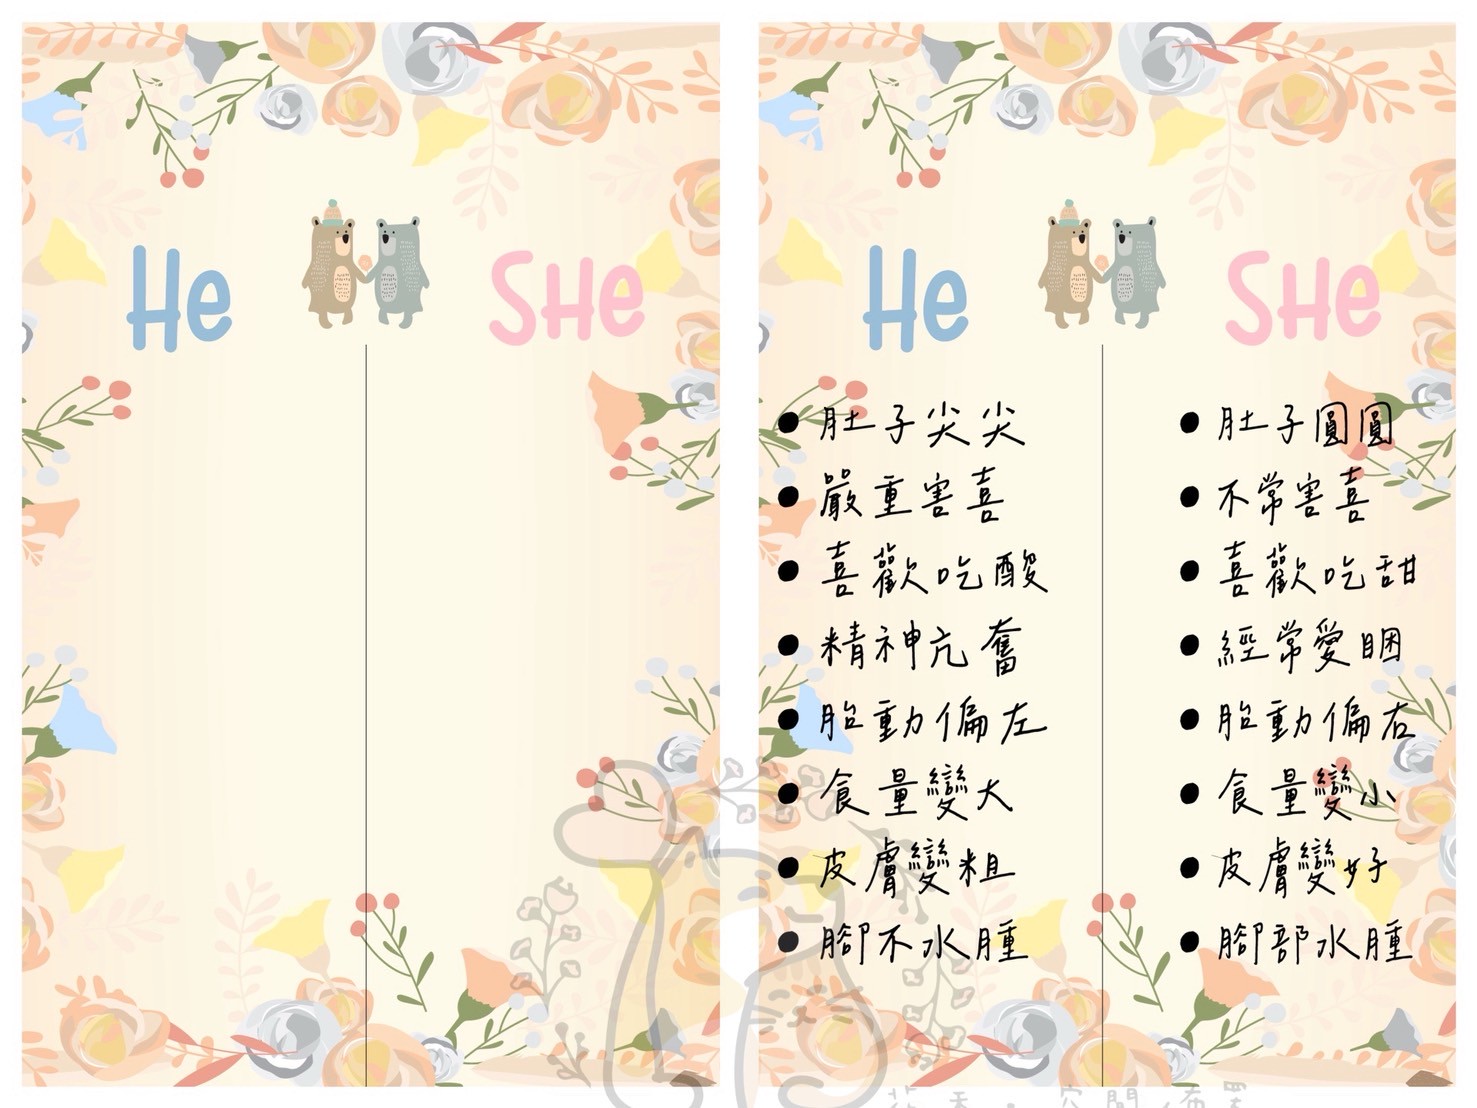 He
SHe
He
SHe
肚子尖尖
嚴重害喜
喜歡吃酸
精神亢奮
胎動偏左
食量變大
皮膚變粗
腳不水腫
肚子圓圓
不常害喜
喜歡吃甜
經常愛睏
胎動偏右
食量變小
皮膚變好
腳部水腫